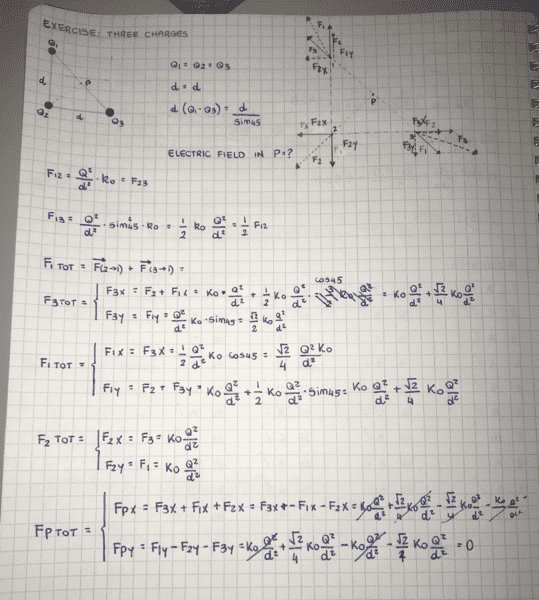 EXERCISE: THREE CHARGES
Q₁
d
P
Q₂
d
Q₃
Q₁ = Q₂ = Q₃
d = d
d (Q₁-Q₃) = d/sim45
ELECTRIC FIELD IN P=?
F₁
F₂
F₃
F1Y
F2X
1
P
F₃ F2X
2
F2Y
F₂
F3X F₂
3
F₃
F3Y F₁
F₁₂ = Q²/d² · K₀ = F₂₃
F₁₃ = Q²/d² · sim²45 · K₀ = 1/2 K₀ Q²/d² = 1/2 F₁₂
F₁ TOT = F(2→1) + F(3→1) =
F₃TOT = { F3X = F₂ + F1X = K₀ · Q²/d² + 1/2 K₀ Q²/d² · cos45 = K₀ Q²/d² + √2/4 K₀ Q²/d²
F3Y = F1Y = Q²/d² K₀ · sim45 = √2/2 K₀ Q²/d²
F₁ TOT = { F1X = F3X = 1/2 Q²/d² K₀ cos45 = √2/4 Q² K₀/d²
F1Y = F₂ + F3Y = K₀ Q²/d² + 1/2 K₀ Q²/d² · sim45 = K₀ Q²/d² + √2/4 K₀ Q²/d²
F₂ TOT = { F2X = F₃ = K₀ Q²/d²
F2Y = F₁ = K₀ Q²/d²
FP TOT = { FPX = F3X + F1X + F2X = F3X + - F1X - F2X = K₀ Q²/d² + √2/4 K₀ Q²/d² - √2/4 K₀ Q²/d² - K₀ Q²/d²
FPY = F1Y - F2Y - F3Y = K₀ Q²/d² + √2/4 K₀ Q²/d² - K₀ Q²/d² - √2/4 K₀ Q²/d² = 0